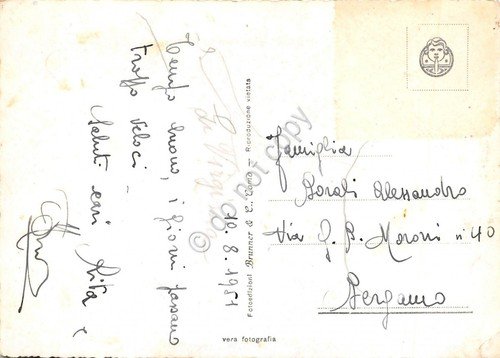 Tempo buono, i giorni passano
troppo veloci -
Saluti cari Rita e
10.8.1951
Fotoedizioni Brunner & C. Como - Riproduzione vietata
vera fotografia
Famiglia
Borali Alessandro
Via G. B. Moroni n° 40
Bergamo
do not copy